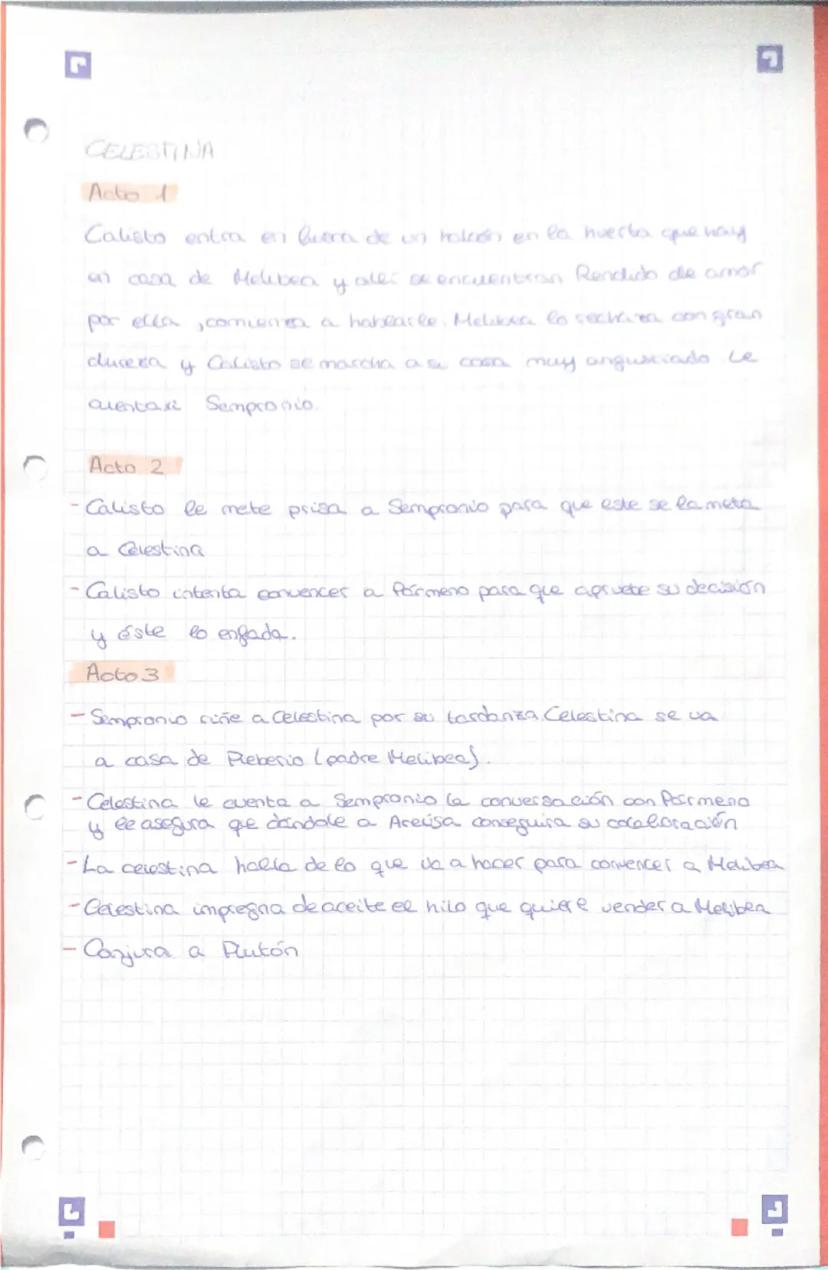 CELESTINA
Acto 1
Calisto entra en busca de un halcón en la huerta que hay
en casa de Melibea y allí se encuentran Rendido de amor
por ella, comienza a hablarle. Melibea lo rechaza con gran
dureza y Calisto se marcha a su casa muy angustiado Le
cuenta Sempronio.
Acto 2
- Calisto le mete prisa a Sempronio para que este se la meta
a Celestina
- Calisto intenta convencer a Pármeno para que apruebe su decisión
y éste lo enfada.
Acto 3
- Sempronio riñe a Celestina por su tardanza. Celestina se va
a casa de Pleberio (padre Melibea).
- Celestina le cuenta a Sempronio la conversación con Pármeno
y le asegura que dándole a Areúsa conseguira su colaboración
- La celestina habla de lo que va a hacer para convencer a Melibea
- Celestina impregna de aceite el hilo que quiere vender a Melibea
- Conjura a Plutón